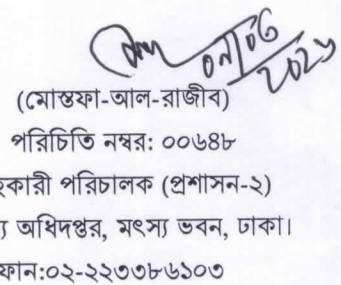 ০৭/০৬/২০২৬
(মোস্তফা-আল-রাজীব)
পরিচিতি নম্বর: ০০৬৪৮
কারী পরিচালক (প্রশাসন-২)
অধিদপ্তর, মৎস্য ভবন, ঢাকা।
ফোন:০২-২২৩৩৮৬১০৩